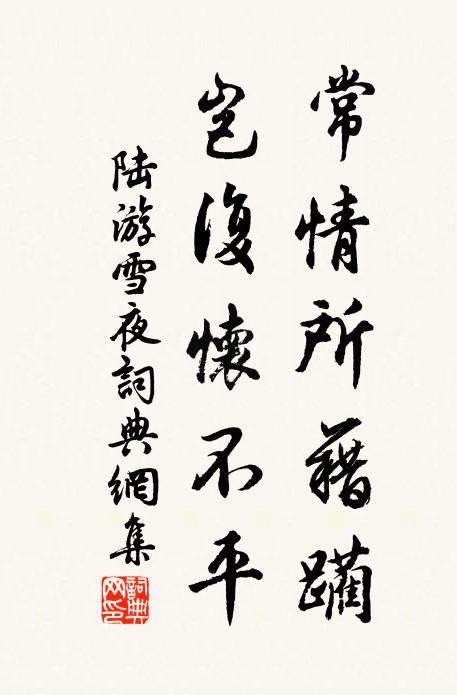 常情所藉躪
豈復懷不平
陸游雪夜詞典網集
詞典网印